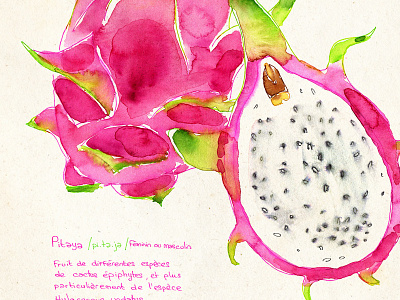 Pitaya /pi.ta.ja/ Féminin ou masculin
Fruit de différentes espèces
de cactus épiphytes et plus
particulièrement de l'espèce
Hylocereus undatus